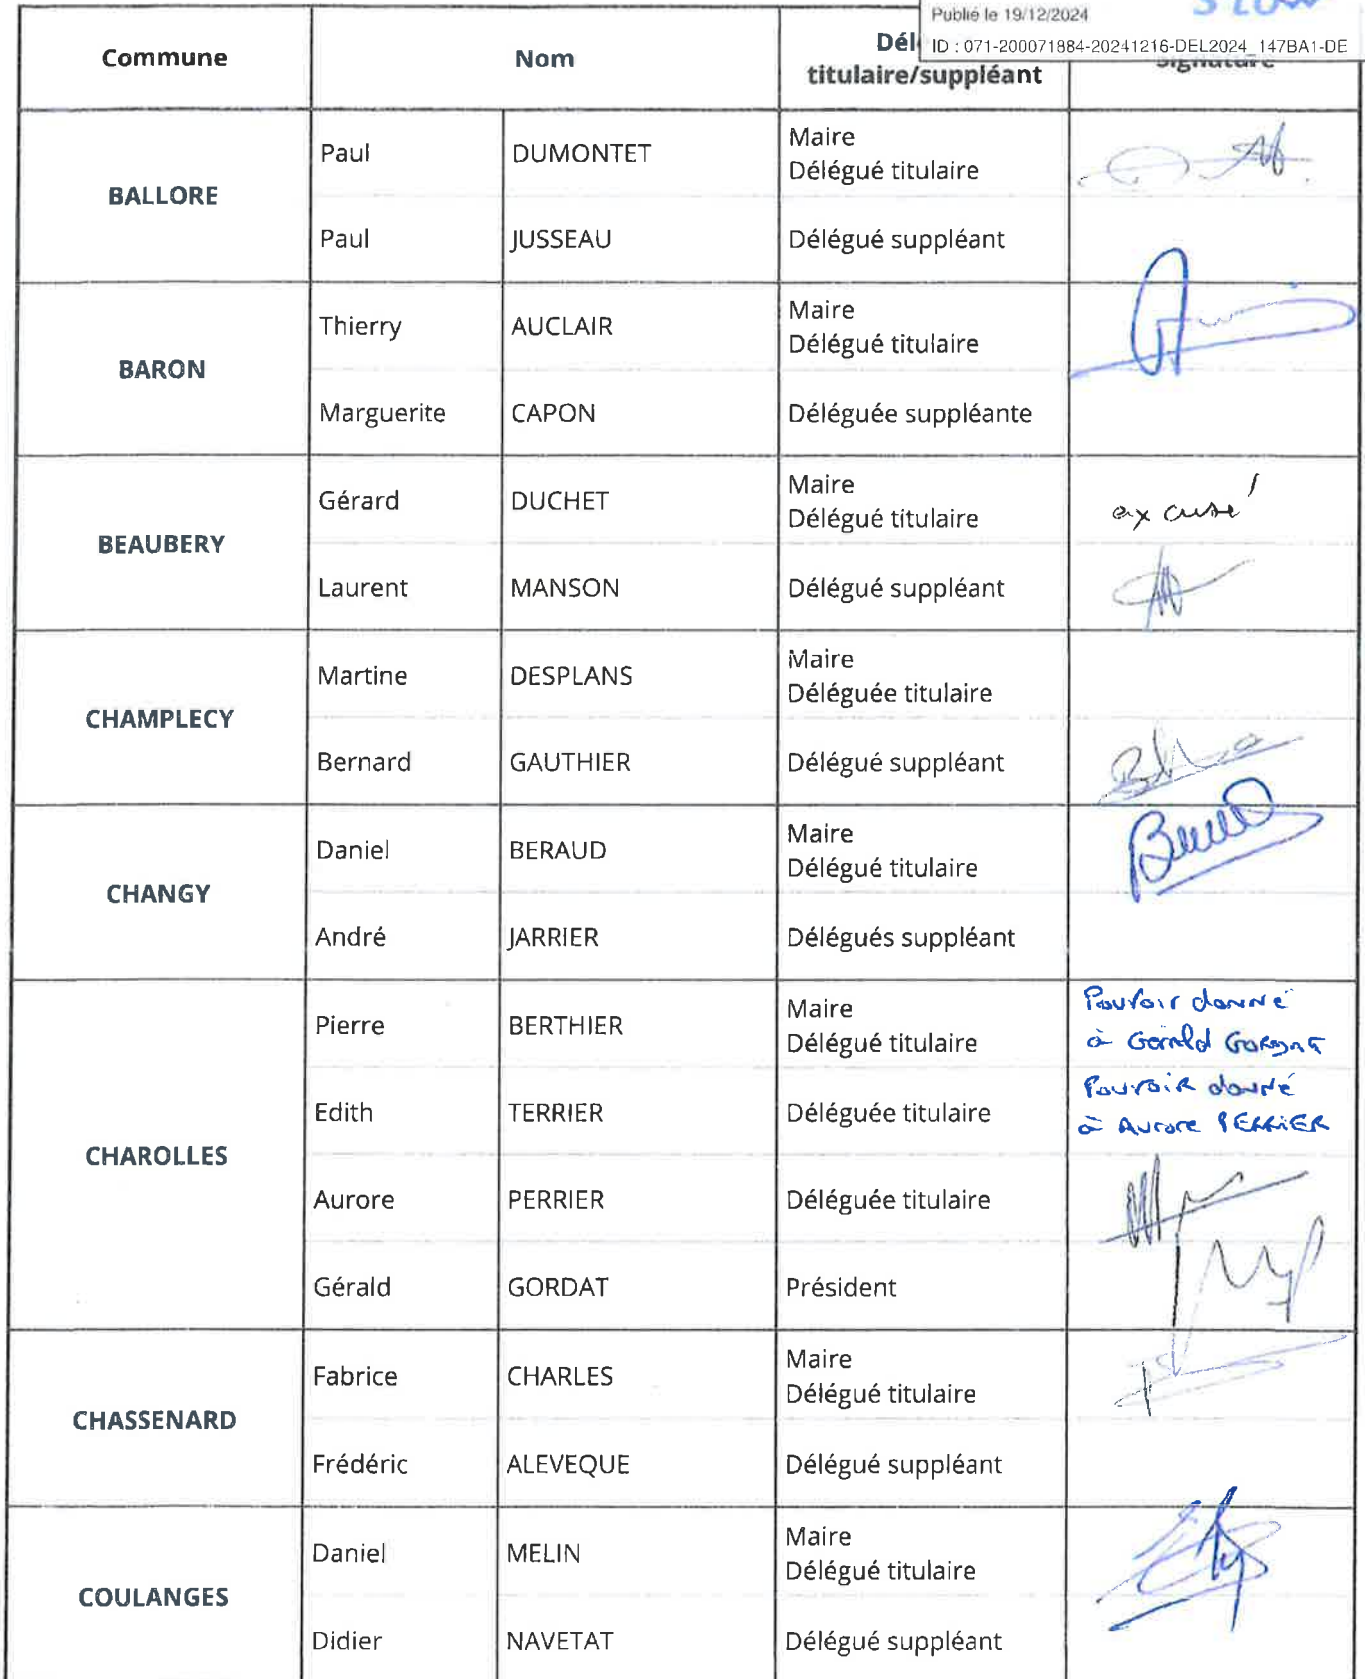 Publié le 19/12/2024
ID : 071-200071884-20241216-DEL2024_147BA1-DE
Commune
Nom
Dél
titulaire/suppléant
Signature
BALLORE
Paul DUMONTET
Maire
Délégué titulaire
Paul JUSSEAU Délégué suppléant
BARON
Thierry AUCLAIR
Maire
Délégué titulaire
Marguerite CAPON Déléguée suppléante
BEAUBERY
Gérard DUCHET
Maire
Délégué titulaire
excusé
Laurent MANSON Délégué suppléant
CHAMPLECY
Martine DESPLANS
Maire
Déléguée titulaire
Bernard GAUTHIER Délégué suppléant
CHANGY
Daniel BERAUD
Maire
Délégué titulaire
André JARRIER Délégués suppléant
CHAROLLES
Pierre BERTHIER
Maire
Délégué titulaire
Pouvoir donné
à Gérald GORDAT
Edith TERRIER Déléguée titulaire
Pouvoir donné
à Aurore PERRIER
Aurore PERRIER Déléguée titulaire
Gérald GORDAT Président
CHASSENARD
Fabrice CHARLES
Maire
Délégué titulaire
Frédéric ALEVEQUE Délégué suppléant
COULANGES
Daniel MELIN
Maire
Délégué titulaire
Didier NAVETAT Délégué suppléant